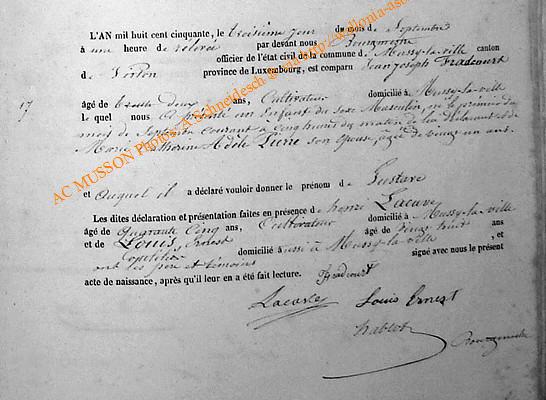 L'AN mil huit cent cinquante, le troisième jour du mois de Septembre
à une heure de relevée par devant nous Bourgmestre
officier de l'état civil de la commune de Mussy-la-ville canton
de Virton province de Luxembourg, est comparu Jean Joseph Fradcourt
17
âgé de trente deux ans, Cultivateur domicilié à Mussy-la-ville
le quel nous a présenté un Enfant du Sexe Masculin, né le premier du
mois de Septembre courant à cinq heures du matin de lui déclarant et de
Marie Catherine Adèle Pierre son épouse, âgée de vingt un ans.
et auquel il a déclaré vouloir donner le prénom de Gustave
Les dites déclaration et présentation faites en présence de henri Lacave
âgé de quarante cinq ans, Cultivateur domicilié à Mussy-la-ville
et de Louis Ernest âgé de vingt huit ans
domicilié aussi à Mussy-la-ville , et
ont les père et témoins signé avec nous le présent
acte de naissance, après qu'il leur en a été fait lecture. Fradcourt
Louis Ernest
AC MUSSON Photos: A Schneidesch-Scania http://wallonia-as